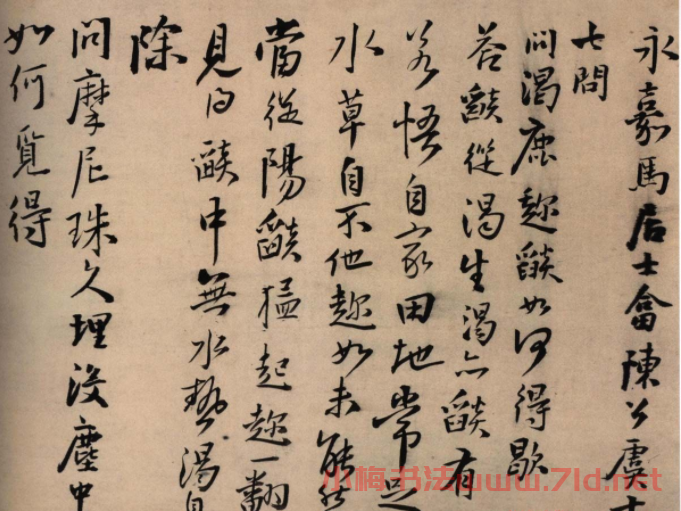 永嘉馬居士畣陳公虞士
七問
問渴鹿趂燄如何得歇
荅燄從渴生渴亡燄有
若悟自家田地常足
水草自不他趂如未能
當從陽燄猛起趂一翻
見得燄中無水熱渴自
除
問摩尼珠久埋沒塵中
如何覓得
小梅书法www.7ld.net